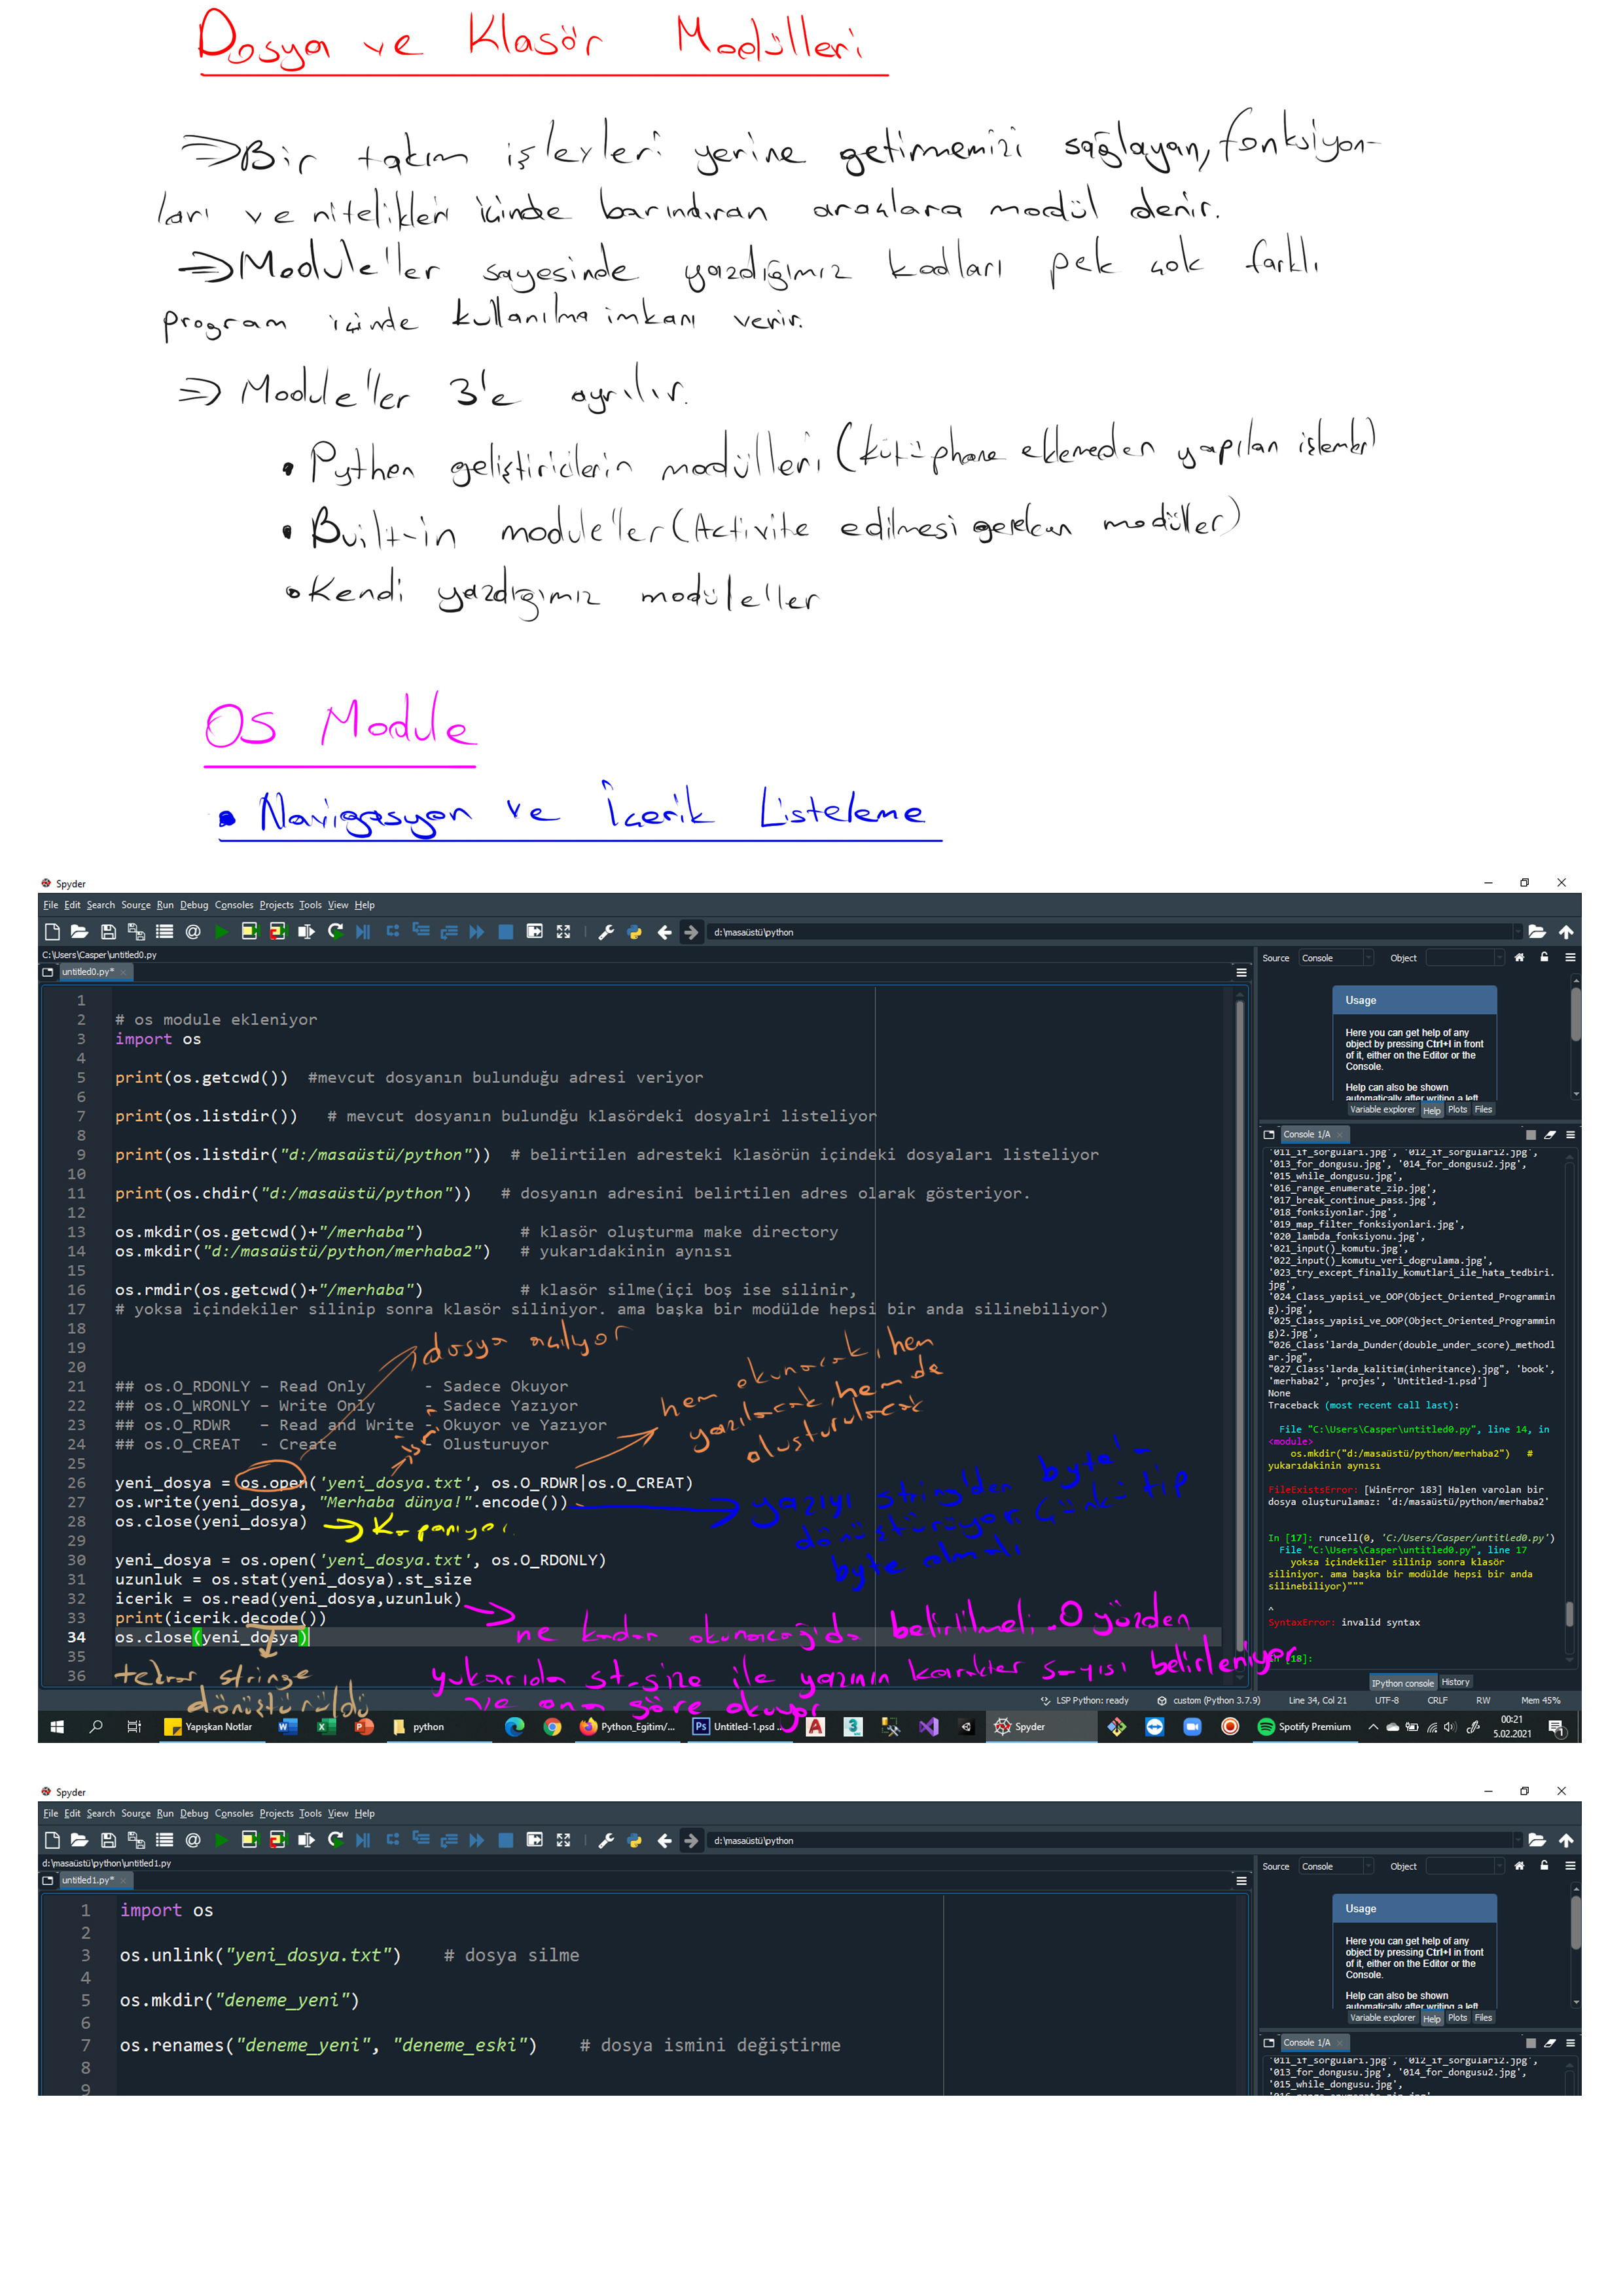 Dosya ve Klasör Modülleri
⇒Bir takım işlevleri yerine getirmemizi sağlayan, fonksiyon-
ları ve nitelikleri içinde barındıran araçlara modül denir.
⇒Module'ller sayesinde yazdığımız kodları pek çok farklı
program içinde kullanılma imkanı verir.
⇒ Module'ller 3'e ayrılır.
• Python geliştiricilerin modülleri (kütüphane eklemeden yapılan işlemler)
• Built-in module'ller (Activite edilmesi gereken modüller)
• Kendi yazdığımız modüleller
OS Module
• Navigasyon ve İçerik Listeleme
Spyder
File Edit Search Source Run Debug Consoles Projects Tools View Help
d:\masaüstü\python
C:\Users\Casper\untitled0.py
untitled0.py*
1
2 # os module ekleniyor
3 import os
4
5 print(os.getcwd())  #mevcut dosyanın bulunduğu adresi veriyor
6
7 print(os.listdir())   # mevcut dosyanın bulundğu klasördeki dosyalri listeliyor
8
9 print(os.listdir("d:/masaüstü/python"))  # belirtilen adresteki klasörün içindeki dosyaları listeliyor
10
11 print(os.chdir("d:/masaüstü/python"))   # dosyanın adresini belirtilen adres olarak gösteriyor.
12
13 os.mkdir(os.getcwd()+"/merhaba")          # klasör oluşturma make directory
14 os.mkdir("d:/masaüstü/python/merhaba2")   # yukarıdakinin aynısı
15
16 os.rmdir(os.getcwd()+"/merhaba")          # klasör silme(içi boş ise silinir,
17 # yoksa içindekiler silinip sonra klasör siliniyor. ama başka bir modülde hepsi bir anda silinebiliyor)
18
19
20
dosya açılıyor
21 ## os.O_RDONLY – Read Only      - Sadece Okuyor
22 ## os.O_WRONLY – Write Only     - Sadece Yazıyor
23 ## os.O_RDWR   – Read and Write - Okuyor ve Yazıyor
24 ## os.O_CREAT  - Create         - Olusturuyor
hem okunacak, hem
yazılacak, hem de
oluşturulacak
25
26 yeni_dosya = os.open('yeni_dosya.txt', os.O_RDWR|os.O_CREAT)
27 os.write(yeni_dosya, "Merhaba dünya!".encode())
28 os.close(yeni_dosya)
Kapanıyor
yazıyı string'den byte'
dönüştürüyor. Çünkü tip
byte olmalı
29
30 yeni_dosya = os.open('yeni_dosya.txt', os.O_RDONLY)
31 uzunluk = os.stat(yeni_dosya).st_size
32 icerik = os.read(yeni_dosya,uzunluk)
33 print(icerik.decode())
34 os.close(yeni_dosya)
35
36
ne kadar okunacağıda belirtilmeli. O yüzden
yukarıda st_size ile yazının karakter sayısı belirleniyor
ve ona göre okuyor
tekrar stringe
dönüştürüldü
Source Console Object
Usage
Here you can get help of any
object by pressing Ctrl+I in front
of it, either on the Editor or the
Console.
Help can also be shown
automatically after writing a left
Variable explorer Help Plots Files
Console 1/A
'011_if_sorgulari.jpg', '012_if_sorgulari2.jpg',
'013_for_dongusu.jpg', '014_for_dongusu2.jpg',
'015_while_dongusu.jpg',
'016_range_enumerate_zip.jpg',
'017_break_continue_pass.jpg',
'018_fonksiyonlar.jpg',
'019_map_filter_fonksiyonlari.jpg',
'020_lambda_fonksiyonu.jpg',
'021_input()_komutu.jpg',
'022_input()_komutu_veri_dogrulama.jpg',
'023_try_except_finally_komutlari_ile_hata_tedbiri.
jpg',
'024_Class_yapisi_ve_OOP(Object_Oriented_Programmin
g).jpg',
'025_Class_yapisi_ve_OOP(Object_Oriented_Programmin
g)2.jpg',
"026_Class'larda_Dunder(double_under_score)_methodl
ar.jpg",
"027_Class'larda_kalitim(inheritance).jpg", 'book',
'merhaba2', 'projes', 'Untitled-1.psd']
None
Traceback (most recent call last):
File "C:\Users\Casper\untitled0.py", line 14, in
<module>
os.mkdir("d:/masaüstü/python/merhaba2")   #
yukarıdakinin aynısı
FileExistsError: [WinError 183] Halen varolan bir
dosya oluşturulamaz: 'd:/masaüstü/python/merhaba2'
In [17]: runcell(0, 'C:/Users/Casper/untitled0.py')
File "C:\Users\Casper\untitled0.py", line 17
yoksa içindekiler silinip sonra klasör
siliniyor. ama başka bir modülde hepsi bir anda
silinebiliyor)"""
^
SyntaxError: invalid syntax
[18]:
IPython console History
LSP Python: ready custom (Python 3.7.9) Line 34, Col 21 UTF-8 CRLF RW Mem 45%
Yapışkan Notlar python Python_Egitim/... Untitled-1.psd ... Spyder Spotify Premium 00:21
5.02.2021
Spyder
File Edit Search Source Run Debug Consoles Projects Tools View Help
d:\masaüstü\python
d:\masaüstü\python\untitled1.py
untitled1.py*
1 import os
2
3 os.unlink("yeni_dosya.txt")    # dosya silme
4
5 os.mkdir("deneme_yeni")
6
7 os.renames("deneme_yeni", "deneme_eski")    # dosya ismini değiştirme
8
9
Source Console Object
Usage
Here you can get help of any
object by pressing Ctrl+I in front
of it, either on the Editor or the
Console.
Help can also be shown
automatically after writing a left
Variable explorer Help Plots Files
Console 1/A
'011_if_sorgulari.jpg', '012_if_sorgulari2.jpg',
'013_for_dongusu.jpg', '014_for_dongusu2.jpg',
'015_while_dongusu.jpg',